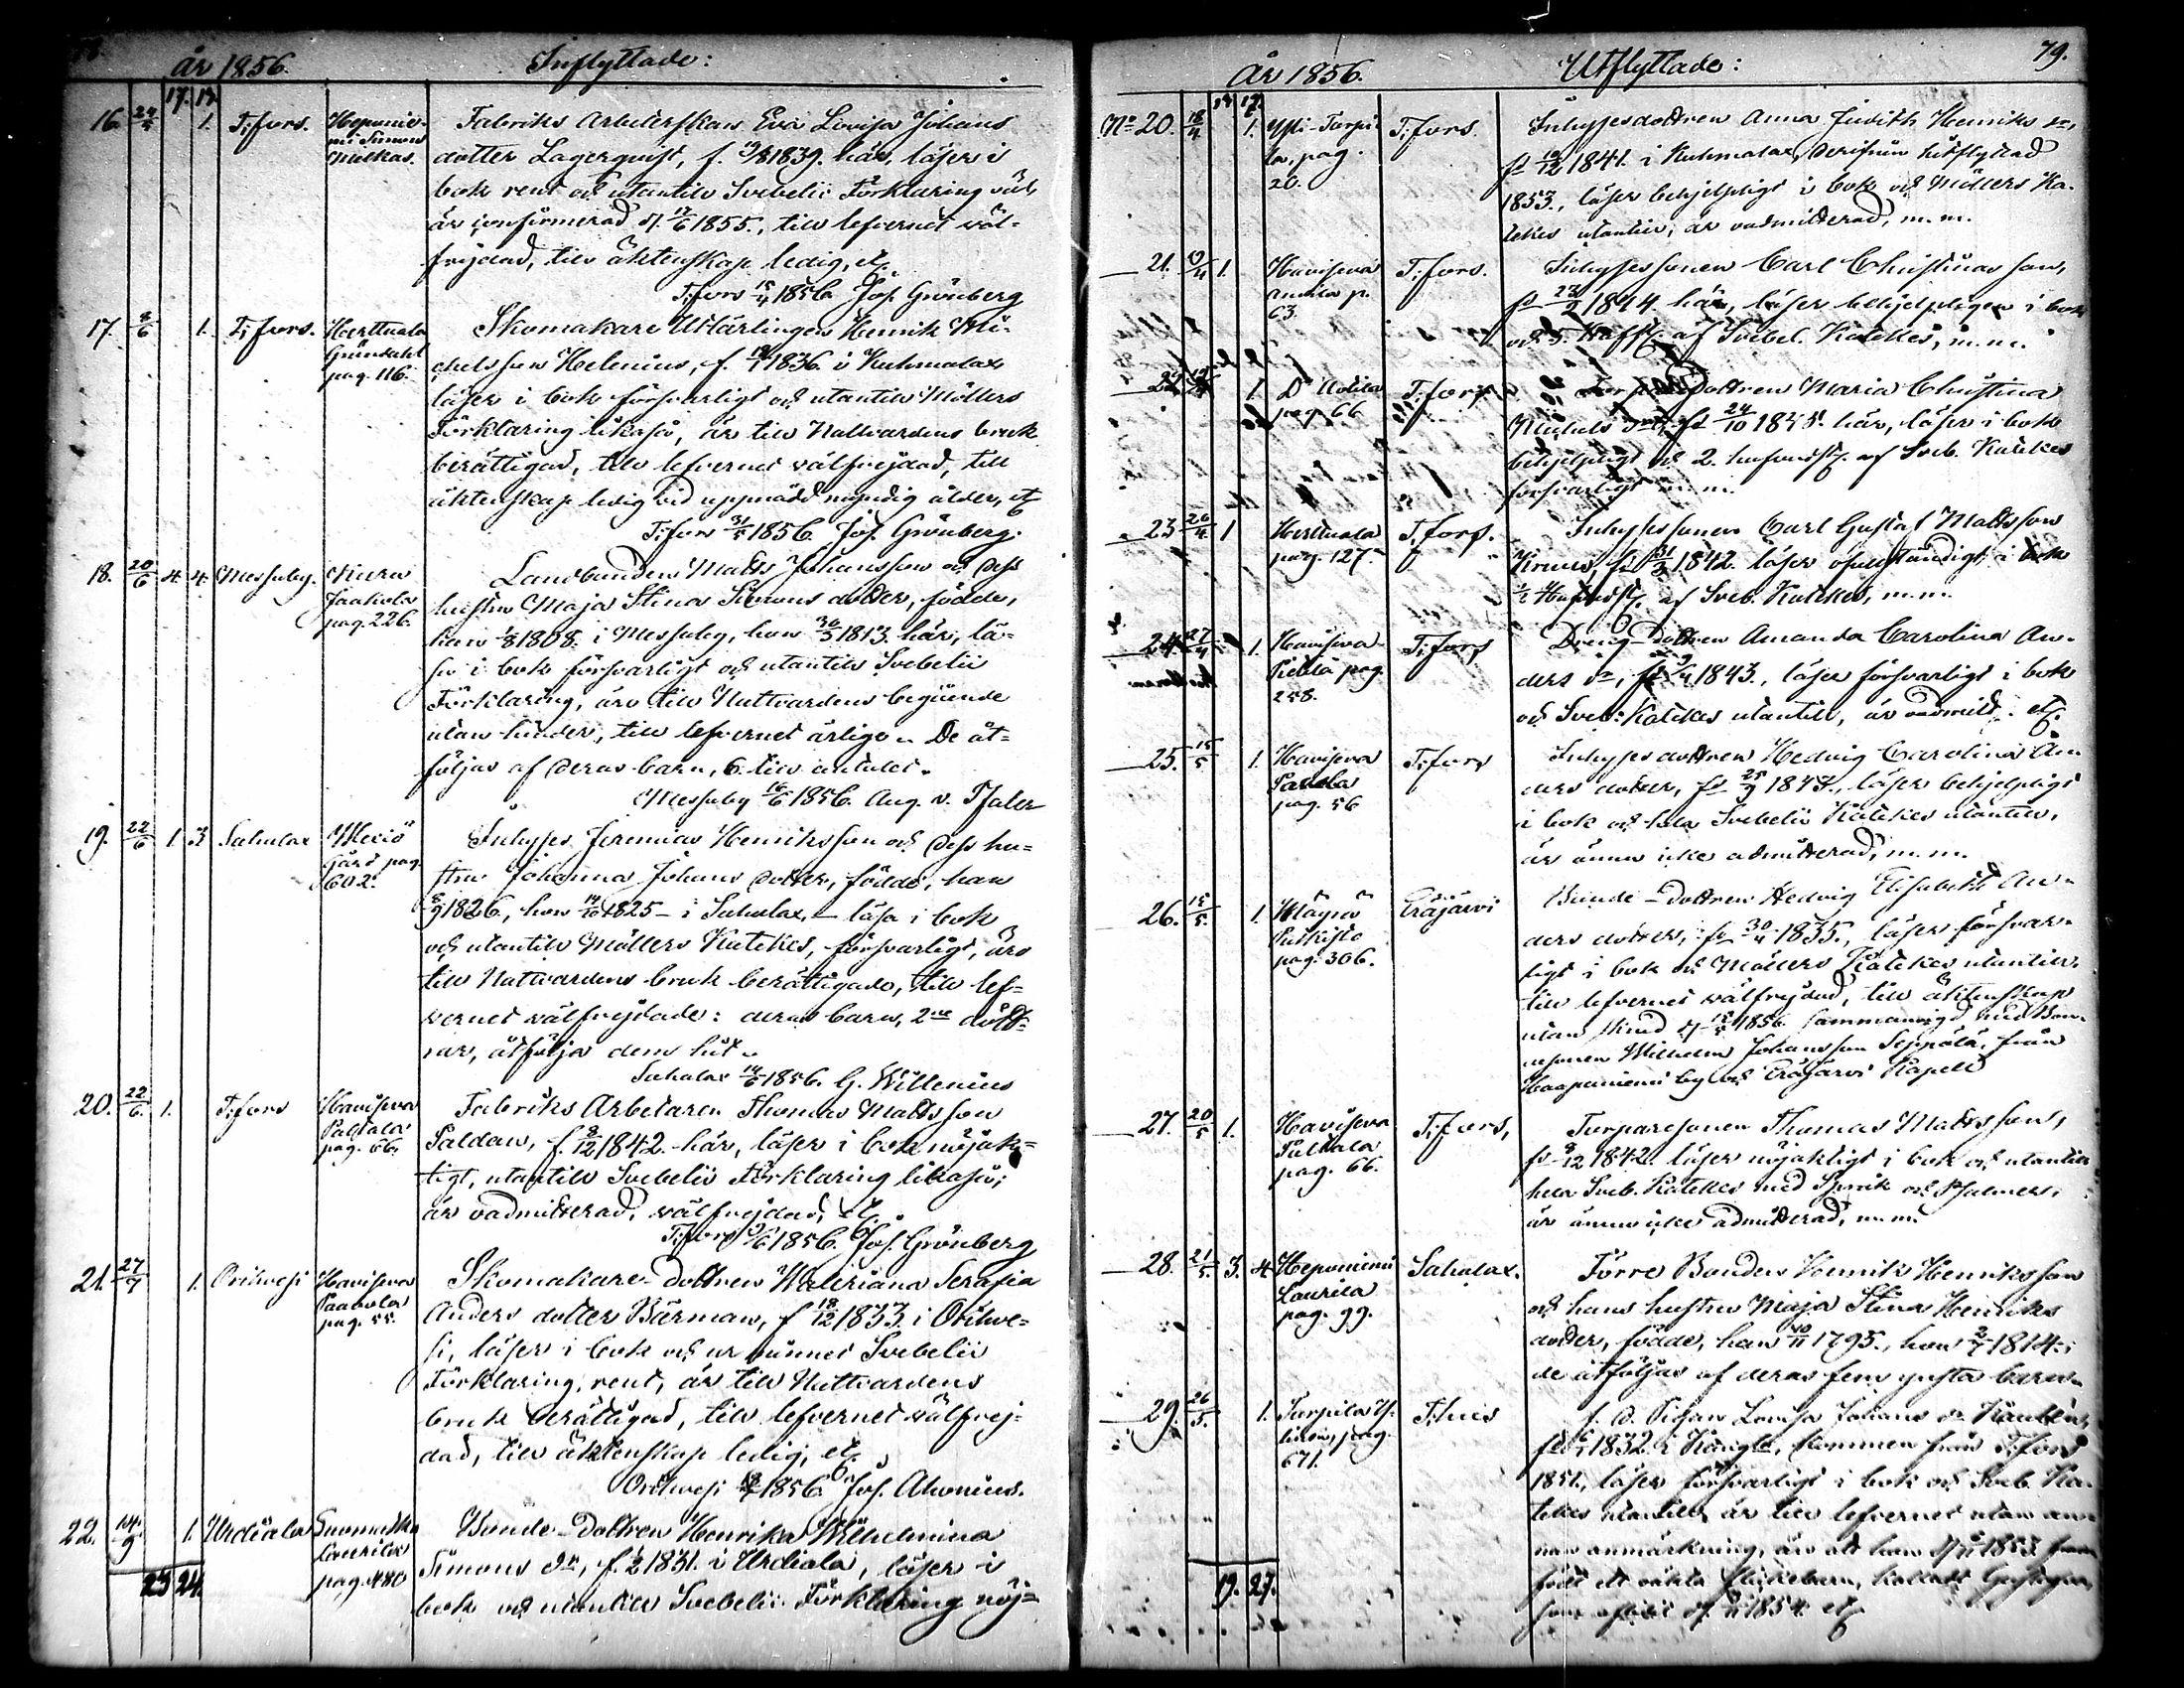 år 1856. Inflyttade:
17. 17.
16. 24/5 1. T:fors. Heponiemi Simon Mickas.
Fabriks Arbeterskan Eva Lovisa Johans
dotter Lagerquist, f. 1839. här, läser i
bok rent och utantill Svebelii Förklaring väl,
är confirmerad d. 17/6 1855., till lefvernet väl-
frejdad, till äktenskap ledig, etc.
T:fors 15/4 1856. Jos. Grönberg
17. 8/6 1. T:fors. Herttuala Gründahl pag. 116.
Skomakare Utlärlingen Henrik Mi-
chelsson Helenius, f. 1836. i Kuhmalax,
läser i bok försvarligt och utantill Möllers
Förklaring likaså, är till Nattvardens bruk
berättigad, till lefvernet välfrejdad, till
äktenskap ledig vid uppnådd myndig ålder, etc
T:fors 31/5 1856. Jos. Grönberg.
18. 20/6 4. 4. Messuby. Jaakola pag. 226.
Landbonden Matts Johansson och dess
hustru Maja Stina Simons dotter, födde,
han 1/8 1808. i Messuby, hon 30/5 1813. här, lä-
sa i bok försvarligt och utantill Svebelii
Förklaring, äro till Nattvardens begående
utan hinder, till lefvernet ärliga. De åt-
följas af deras barn, 6. till antalet.
Messuby 16/6 1856. Aug. v. Pfaler
19. 22/6 1. 3. Sahalax Gård pag. 602.
Inhyses Jeremias Henriksson och dess hu-
stru Johanna Johans dotter, födde, han
8/9 1826., hon 14/10 1825 – i Sahalax, – läsa i bok
och utantill Möllers Katekes, försvarligt, äro
till Nattvardens bruk berättigade, till lef-
vernet välfrejdade: deras barn, 2ne dött-
rar, åtfölja dem hit.
Sahalax 14/6 1856. G. Willenius
20. 22/6 1. T:fors Haviseva Pakkala pag. 66.
Fabriks Arbetaren Thomas Mattsson
Paldan, f. 8/12 1842. här, läser i bok nöjak-
tigt, utantill Svebelii Förklaring likaså;
är oadmitterad, välfrejdad, etc.
T:fors 1856. Jos. Grönberg
21. 27/7 1. Orihvesi Haviseva Paavola pag. 55.
Skomakare-dottren Waleriana Serafia
Anders dotter Bärman, f 18/12 1833. i Orihve-
si, läser i bok och ur minnet Svebelii
Förklaring, rent, är till Nattvardens
bruk berättigad, till lefvernet välfrej-
dad, till äktenskap ledig, etc.
Orihvesi 1856. Jos. Ahonius.
22. 14/9 1. Urdiala pag. 480
Bonde-Dottren Henrika Wilhelmina
Simons dr, f. 1831. i Urdiala, läser i
bok och utantill Svebelii Förklaring nöj-
23 24.
År 1856. Utflyttade: 79.
No 20. 18/4 1. Yli-Turpila, pag. 20. T:fors.
Inhysesdottren Anna Judith Henriks dr,
fd 10/12 1841. i Kuhmalax, derifrån hitflyttad
1853., läser behjelpligt i bok och Möllers Ka-
tekes utantill, är oadmitterad, m.m.
21. 1. Haviseva Anttila p. 63. T:fors.
Inhysessonen Carl Christiansson,
fd 1844. här, läser behjelpligen i bok
och af Svebel. Katekes, m.m.
22. 1. pag. 66 T:fors
Torparedottren Maria Christina
Michels dotter, fd 24/10 här, läser i bok
behjelpligt och 2. hufvudst. af Sveb. Katekes
försvarligt m.m.
23 26/4. 1 Herttuala pag. 127. T:fors.
Inhysessonen Carl Gustaf Mattsson
fd 31/3 1842. läser ofullständigt i bok
1/2 Hufvudst. af Sveb. Katekes, m.m.
24. 27/4 1. Haviseva Pietilä pag. 258. T:fors
Dreng-dottren Amanda Carolina An-
ders dr, fd 1843., läser försvarligt i bok
och Sveb: Katekes utantill, är oadmitt. etc.
25. 15/5 1. Haviseva Paavola pag. 56 T:fors
Inhyses dottren Hedvig Carolina An-
ders dotter, fd 25/9 1843, läser behjelpligt
i bok och hela Svebelii Katekes utantill,
är ännu icke admitterad, m.m.
26. 18/5. 1. Puikisto pag. 306. Eräjärvi
Bonde-Dottren Hedvig Elisabeth An-
ders dotter, fd 30/4 1835., läser försvar-
ligt i bok och Möllers Katekes utantill,
till lefvernet välfrejdad, till äktenskap
utan d. 1856. sammanvigd med Bon-
desonen Wilhelm Johansson Seppälä, från
Haapaniemi by och Eräjärvi Kapell
27. 20/5 1. Haviseva Pakkala pag. 66. T:fors,
Torparesonen Thomas Mattsson,
fd 8/12 1842. läser nöjaktigt i bok och utantill
hela Sveb. Katekes med Språk och Psalmer,
är ännu icke admitterad, m.m.
28. 21/5. 3. 4. Heponiemi Laurila pag. 99. Sahalax.
Förre Bonden Henrik Henriksson
och hans hustru Maja Stina Henriks
dotter, födde, han 1795., hon 2/7 1814.;
de åtföljas af deras fem yngsta barn.
29. 26/5. 1. Turpila pag. 671. T:hus
f. d. Pigan Lovisa Johans dr
fd 1832. i Kangla, kommen från T:fors
1851., läser försvarligt i bok och Sveb. Ka-
tekes utantill, är till lefvernet utan an-
nan anmärkning, än att hon 1853 fram-
födt ett oäkta flickebarn, kalladt
som aflidit d. 1854. etc
19. 27.